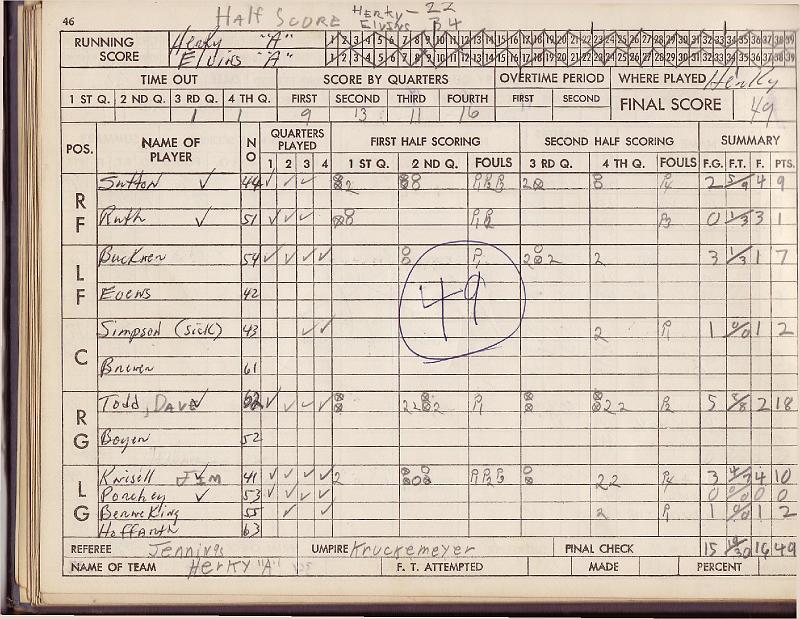 Half Score Herky - 22
Elvins 34
46
RUNNING SCORE Herky "A" 1 2 3 4 5 6 7 8 9 10 11 12 13 14 15 16 17 18 19 20 21 22 23 24 25 26 27 28 29 30 31 32 33 34 35 36 37 38 39
Elvins "A" 1 2 3 4 5 6 7 8 9 10 11 12 13 14 15 16 17 18 19 20 21 22 23 24 25 26 27 28 29 30 31 32 33 34 35 36 37 38 39
TIME OUT SCORE BY QUARTERS OVERTIME PERIOD WHERE PLAYED Herky
1 ST Q. 2 ND Q. 3 RD Q. 4 TH Q. FIRST SECOND THIRD FOURTH FIRST SECOND FINAL SCORE 49
1 1 9 13 11 16
POS. NAME OF PLAYER NO QUARTERS PLAYED 1 2 3 4 FIRST HALF SCORING 1 ST Q. 2 ND Q. FOULS SECOND HALF SCORING 3 RD Q. 4 TH Q. FOULS SUMMARY F.G. F.T. F. PTS.
RF Sutton ✓ 44 ✓ ✓ ✓ 2 P1 P2 P3 2 P4 2 5/9 4 9
Ruth ✓ 51 ✓ ✓ P1 P2 P3 0 1/3 3 1
LF Buckner 54 ✓ ✓ ✓ ✓ P1 2 2 2 3 1/3 1 7
Evens 42
49
C Simpson (sick) 43 ✓ ✓ 2 P1 1 0/0 1 2
Brewen 61
RG Todd, Dave ✓ 62 ✓ ✓ ✓ ✓ 2 2 2 P1 2 2 P2 5 8/8 2 18
Boyer 52
LG Knisell Jim 41 ✓ ✓ ✓ ✓ 2 P1 P2 P3 2 2 P4 3 4/7 4 10
Ponchey ✓ 53 ✓ ✓ ✓ ✓ 0 0/0 0 0
Bennekling 55 ✓ ✓ 2 P1 1 0/0 1 2
Hoffarth 63
REFEREE Jennings UMPIRE Kruckemeyer FINAL CHECK 15 19/30 16 49
NAME OF TEAM Herky "A" F. T. ATTEMPTED MADE PERCENT